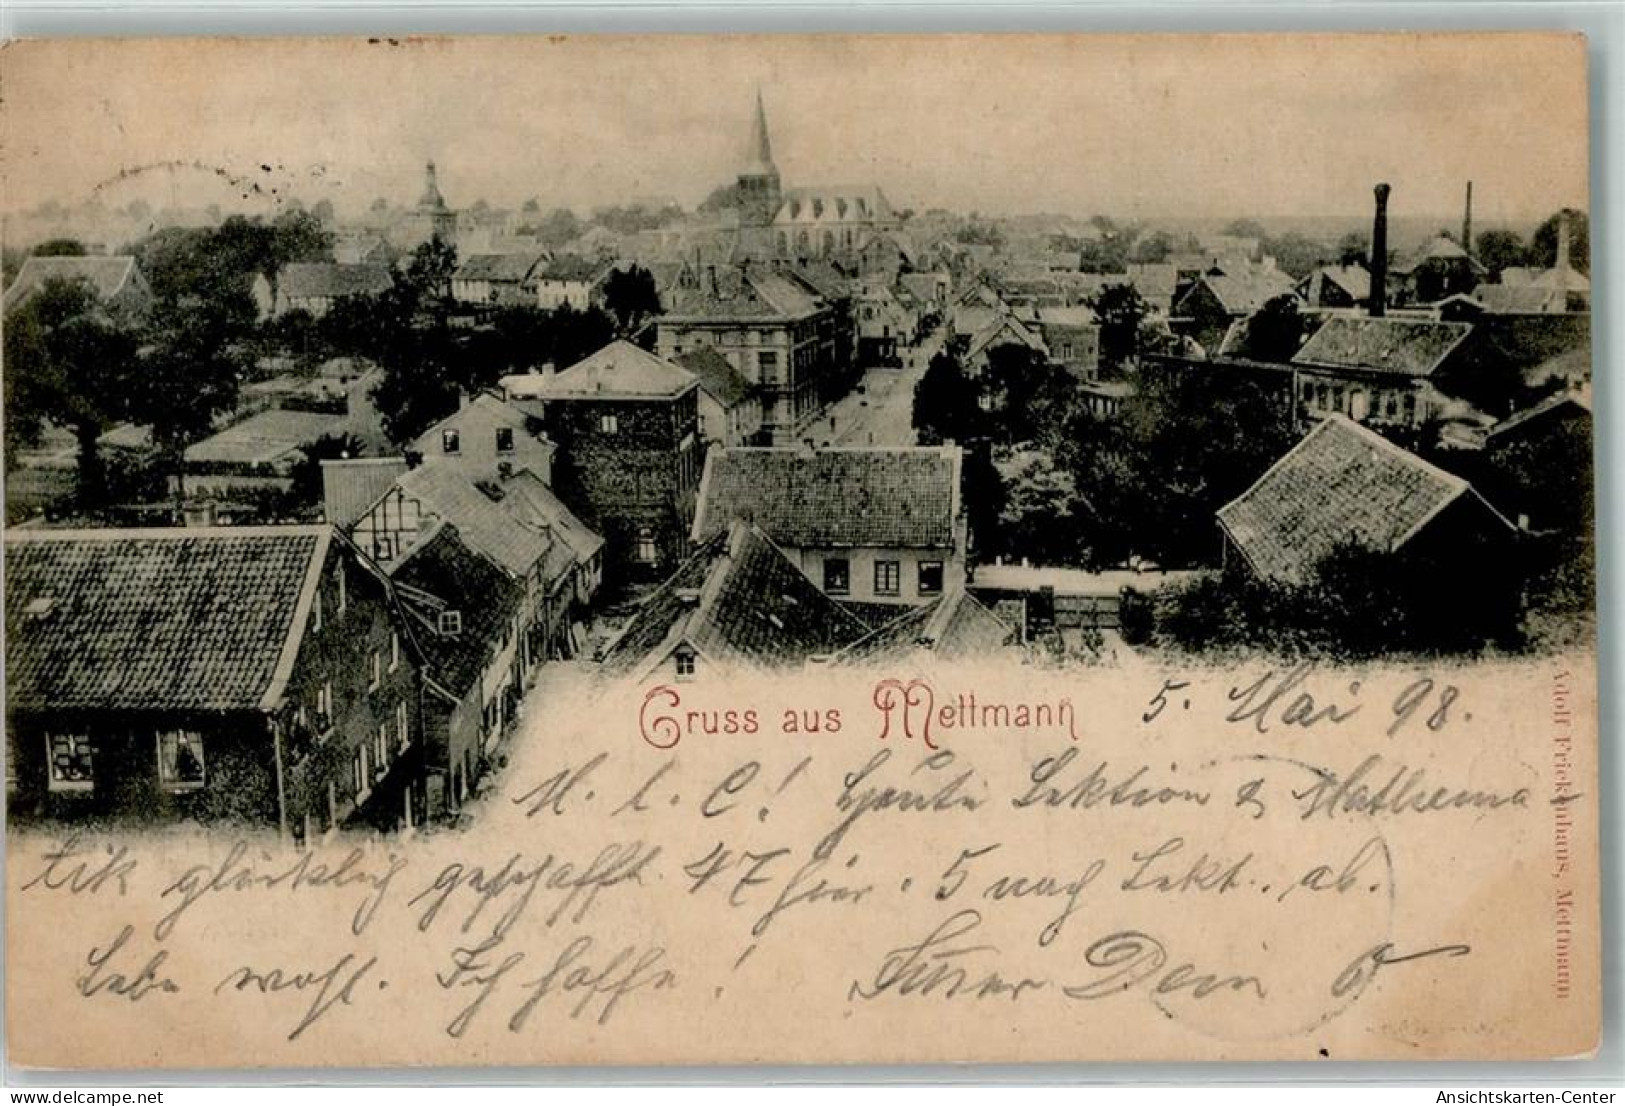 Gruss aus Mettmann 5. Mai 98.
M. l. C.! Heute Lektion & Mathema-
tik glücklich geschafft. 47 hier. 5 nach Lekt. ab.
Lebe wohl. Ich hoffe! Immer Dein
Adolf Frickenhaus, Mettmann
oldthing.de
Ansichtskarten-Center